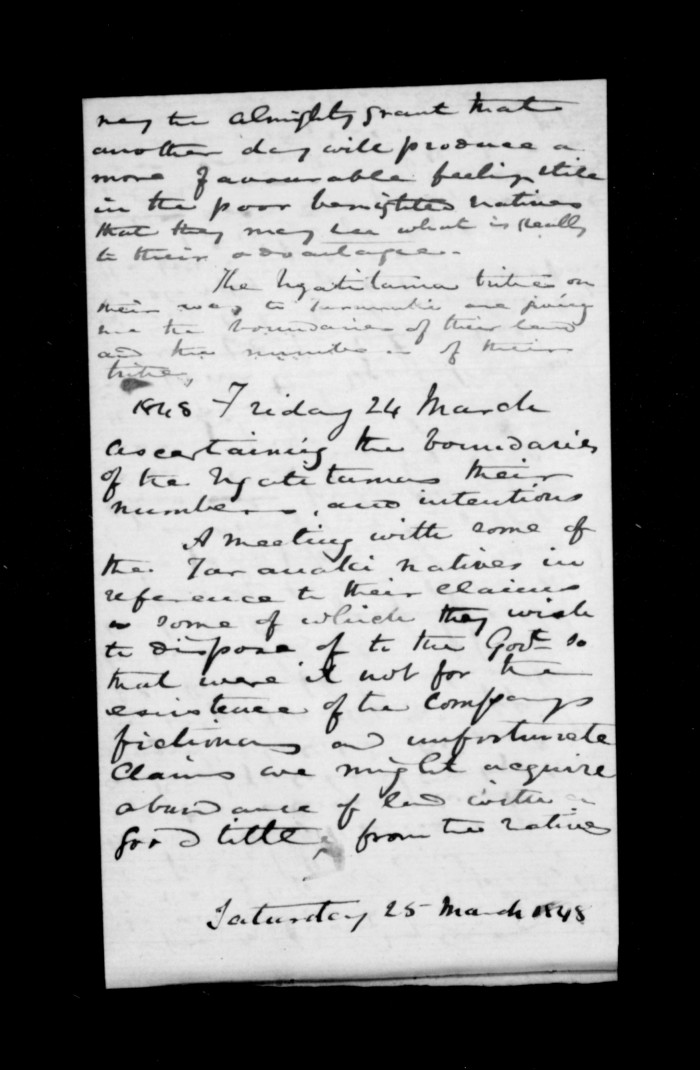 may the almighty grant that
another day will produce a
more favourable feeling still
in the poor benighted natives
that they may see what is really
to their advantage.
The Ngatitama tribe on
their way to Taranaki are giving
me the boundaries of their land
and the numbers of their
tribe,
1848 Friday 24 March
ascertaining the boundaries
of the Ngatitamas their
numbers, and intentions
A meeting with some of
the Taranaki natives in
reference to their claims
some of which they wish
to dispose of to the Govt so
that were it not for the
existence of the Companys
fictionary and unfortunate
claims we might acquire
abundance of land with a
good title, from the natives
Saturday 25 March 1848